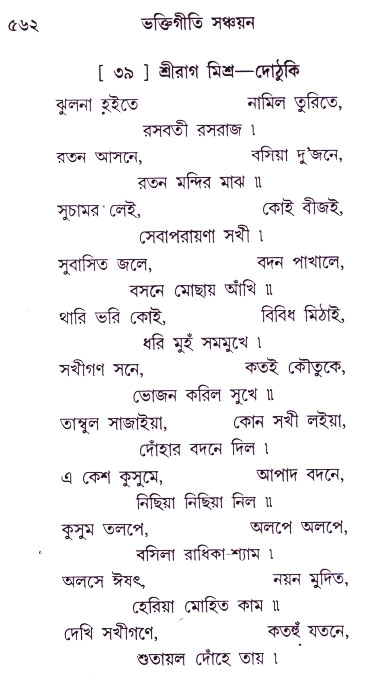 ৫৬২ ভক্তিগীতি সঞ্চয়ন
[ ৩৯ ] শ্রীরাগ মিশ্র—দোঠুকি
ঝুলনা হইতে নামিল তুরিতে,
রসবতী রসরাজ ।
রতন আসনে, বসিয়া দু'জনে,
রতন মন্দির মাঝ ॥
সুচামর লেই, কোই বীজই,
সেবাপরায়ণা সখী ।
সুবাসিত জলে, বদন পাখালে,
বসনে মোছায় আঁখি ॥
থারি ভরি কোই, বিবিধ মিঠাই,
ধরি মুহুঁ সমমুখে ।
সখীগণ সনে, কতই কৌতুকে,
ভোজন করিল সুখে ॥
তাম্বুল সাজাইয়া, কোন সখী লইয়া,
দোঁহার বদনে দিল ।
এ কেশ কুসুমে, আপাদ বদনে,
নিছিয়া নিছিয়া নিল ॥
কুসুম তলপে, অলপে অলপে,
বসিলা রাধিকা-শ্যাম ।
অলসে ঈষৎ, নয়ন মুদিত,
হেরিয়া মোহিত কাম ॥
দেখি সখীগণে, কতহুঁ যতনে,
শুতায়ল দোঁহে তায় ।